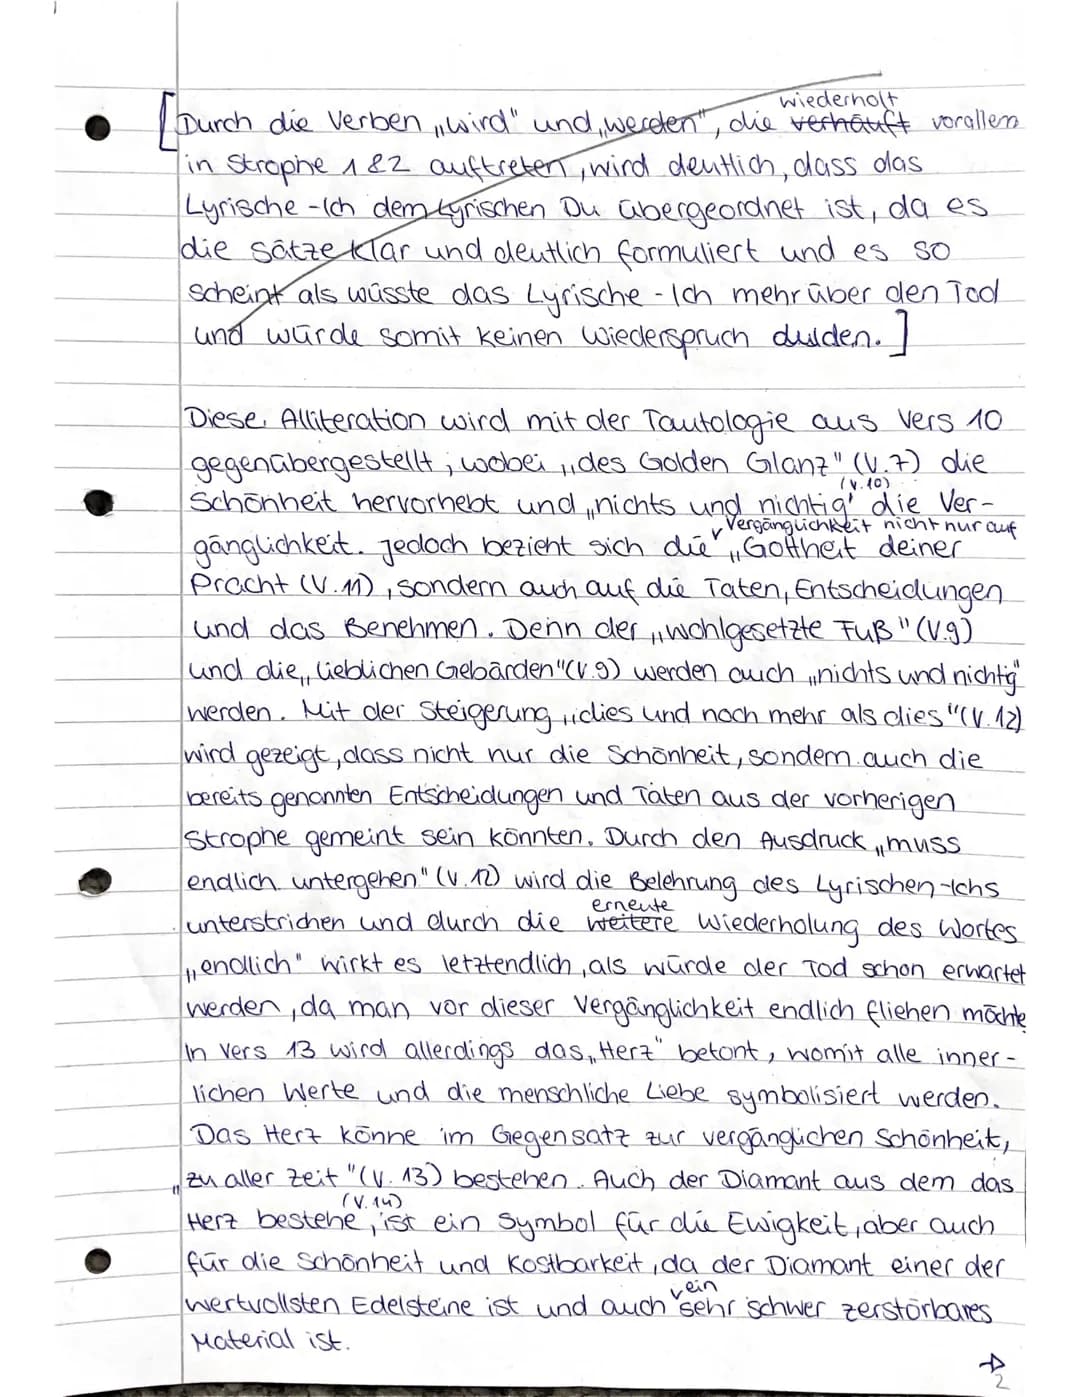 wiederholt
[Durch die Verben „wird" und „werden", die verhäuft vorallem
in Strophe 1&2 auftreten, wird deutlich, dass das
Lyrische-Ich dem Lyrischen Du übergeordnet ist, da es
die Sätze klar und deutlich formuliert und es so
scheint als wüsste das Lyrische-Ich mehr über den Tod
und würde somit keinen Wiederspruch dulden.]
Diese Alliteration wird mit der Tautologie aus Vers 10
gegenübergestellt, wobei „des Golden Glanz" (V.7) die
(V.10)
Schönheit hervorhebt und „nichts und nichtig" die Ver-
Vergänglichkeit nicht nur auf
gänglichkeit. Jedoch bezieht sich die „Gottheit deiner
Pracht (V.11), sondern auch auf die Taten, Entscheidungen
und das Benehmen. Denn der „wohlgesetzte Fuß" (V.9)
und die „lieblichen Gebärden" (V.9) werden auch „nichts und nichtig"
werden. Mit der Steigerung „dies und noch mehr als dies" (V.12)
wird gezeigt, dass nicht nur die Schönheit, sondern auch die
bereits genannten Entscheidungen und Taten aus der vorherigen
Strophe gemeint sein könnten. Durch den Ausdruck „muss
endlich untergehen" (V.12) wird die Belehrung des Lyrischen-Ichs
erneute
unterstrichen und durch die weitere Wiederholung des Wortes
„endlich" wirkt es letztendlich, als würde der Tod schon erwartet
werden, da man vor dieser Vergänglichkeit endlich fliehen möchte
In Vers 13 wird allerdings das „Herz" betont, womit alle inner-
lichen Werte und die menschliche Liebe symbolisiert werden.
Das Herz könne im Gegensatz zur vergänglichen Schönheit,
„zu aller Zeit" (V.13) bestehen. Auch der Diamant aus dem das
(V.14)
Herz bestehe, ist ein Symbol für die Ewigkeit, aber auch
für die Schönheit und Kostbarkeit, da der Diamant einer der
ein
wertvollsten Edelsteine ist und auch sehr schwer zerstörbares
Material ist.
2